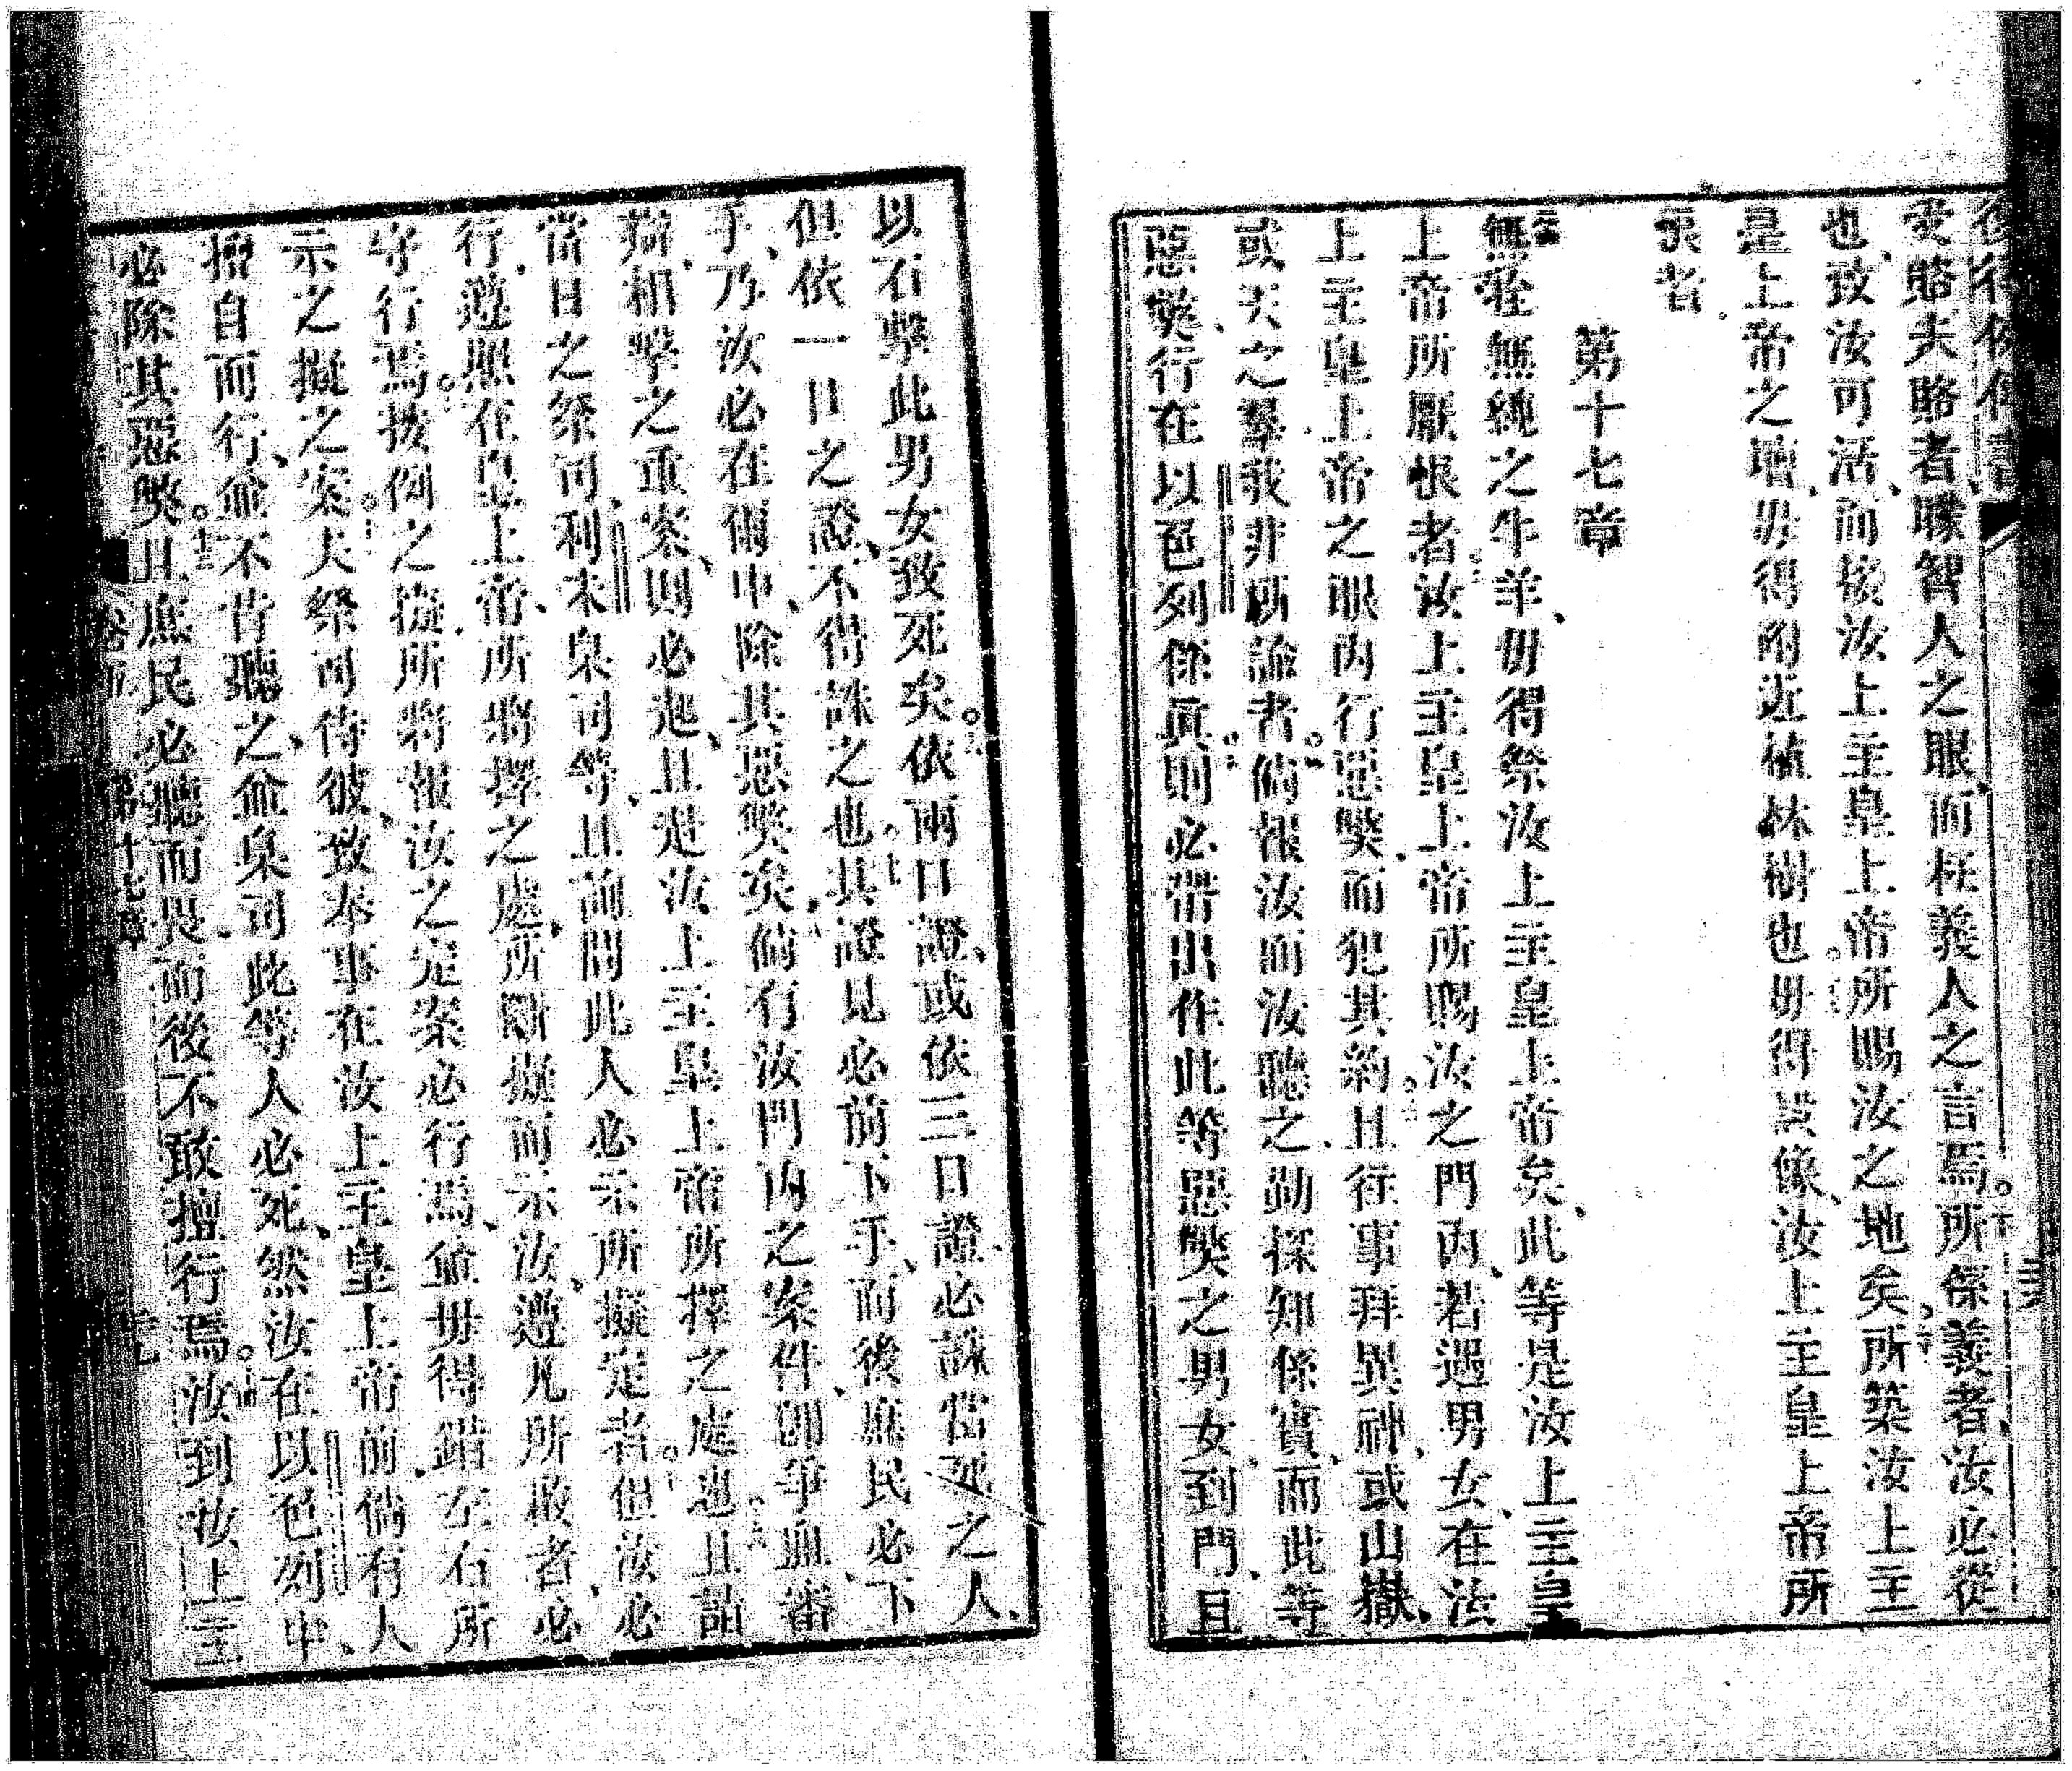 復行例傳書
受賂夫賂者矇智人之眼而枉義人之言焉所係義者汝必從
也致汝可活而接汝上主皇上帝所賜汝之地矣所築汝上主
皇上帝之壇毋得附近植林樹也毋得設像汝上主皇上帝所
恨者
第十七章
無莊無純之牛羊毋得祭汝上主皇上帝矣此等是汝上主皇
上帝所厭恨者汝上主皇上帝所賜汝之門內若遇男女在汝
上主皇上帝之眼內行惡獘而犯其約且往事拜異神或山嶽
或天之羣我非所諭者倘報汝而汝聽之勤探知係實而此等
惡獘行在以色列係眞則必帶出作此等惡獘之男女到門且
以石擊此男女致死矣依兩口證或依三口證必誅當死之人
但依一口之證不得誅之也其證見必前下手而後庶民必下
手乃汝必在爾中除其惡獘矣倘有汝門內之案件卽爭血審
辯相擊之重案則必起且進汝上主皇上帝所擇之處也且詣
當日之祭司利未臬司等且前問此人必示所擬定者但汝必
行遵照在皇上帝所將擇之處所斷擬而示汝遵凡所報者必
守行焉按例之擬所將報汝之定案必行焉並毋得錯左右所
示之擬之案夫祭司侍彼致奉事在汝上主皇上帝前倘有人
擅自而行並不肯聽之並臬司此等人必死然汝在以色列中
必除其惡獘且庶民必聽而畏而後不敢擅行焉汝到汝上主
卷五 第十七章